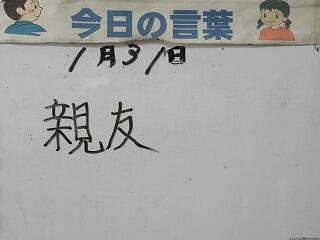 今日の言葉
1月31日
親友